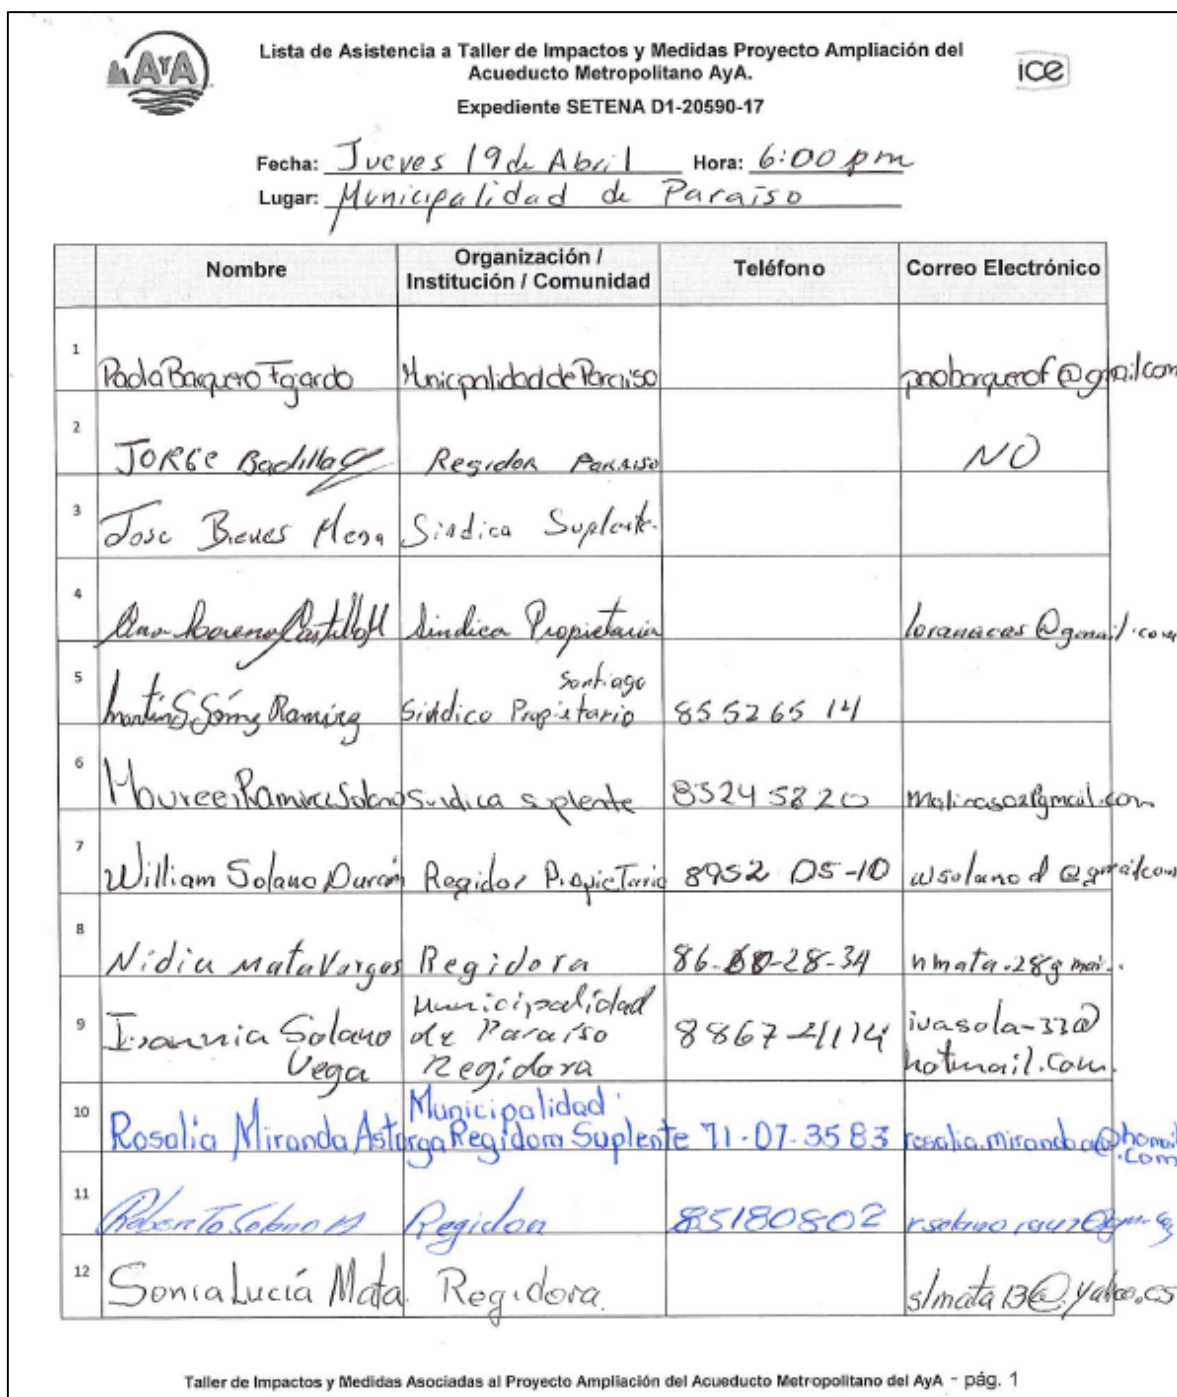 AYA
Lista de Asistencia a Taller de Impactos y Medidas Proyecto Ampliación del
Acueducto Metropolitano AyA.
ice
Expediente SETENA D1-20590-17
Fecha: Jueves 19 de Abril Hora: 6:00 pm
Lugar: Municipalidad de Paraíso
Nombre Organización / Institución / Comunidad Teléfono Correo Electrónico
1 Paola Barquero Fajardo Municipalidad de Paraiso paobarquerof@gmail.com
2 JORGE Badilla Regidor PARAISO NO
3 Jose Mesa Sindica Suplente.
4 Ana Lorena Castillo M Sindica Propietaria loranacas@gmail.com
5 Martín S. Ramírez Síndico Propietario Santiago 855265 14
6 Ramirez Solano Sindica suplente 8324 58 20
7 William Solano Durán Regidor Propietario 8952 05-10 wsolano d @gmail.com
8 Nidia Mata Vargas Regidora 86- -28-34 nmata.28g mai..
9 Ivannia Solano
Vega
Municipalidad
de Paraíso
Regidora
8867-4114
ivasola-33@
hotmail.com.
10 Rosalia Miranda Astorga Municipalidad
Regidora Suplente 71-07-3583 rosalia.miranda.a@
.com
11 Roberto Solano Regidor 85180802
12 Sonia Lucía Mata. Regidora. slmata13@yahoo.es
Taller de Impactos y Medidas Asociadas al Proyecto Ampliación del Acueducto Metropolitano del AyA - pág. 1